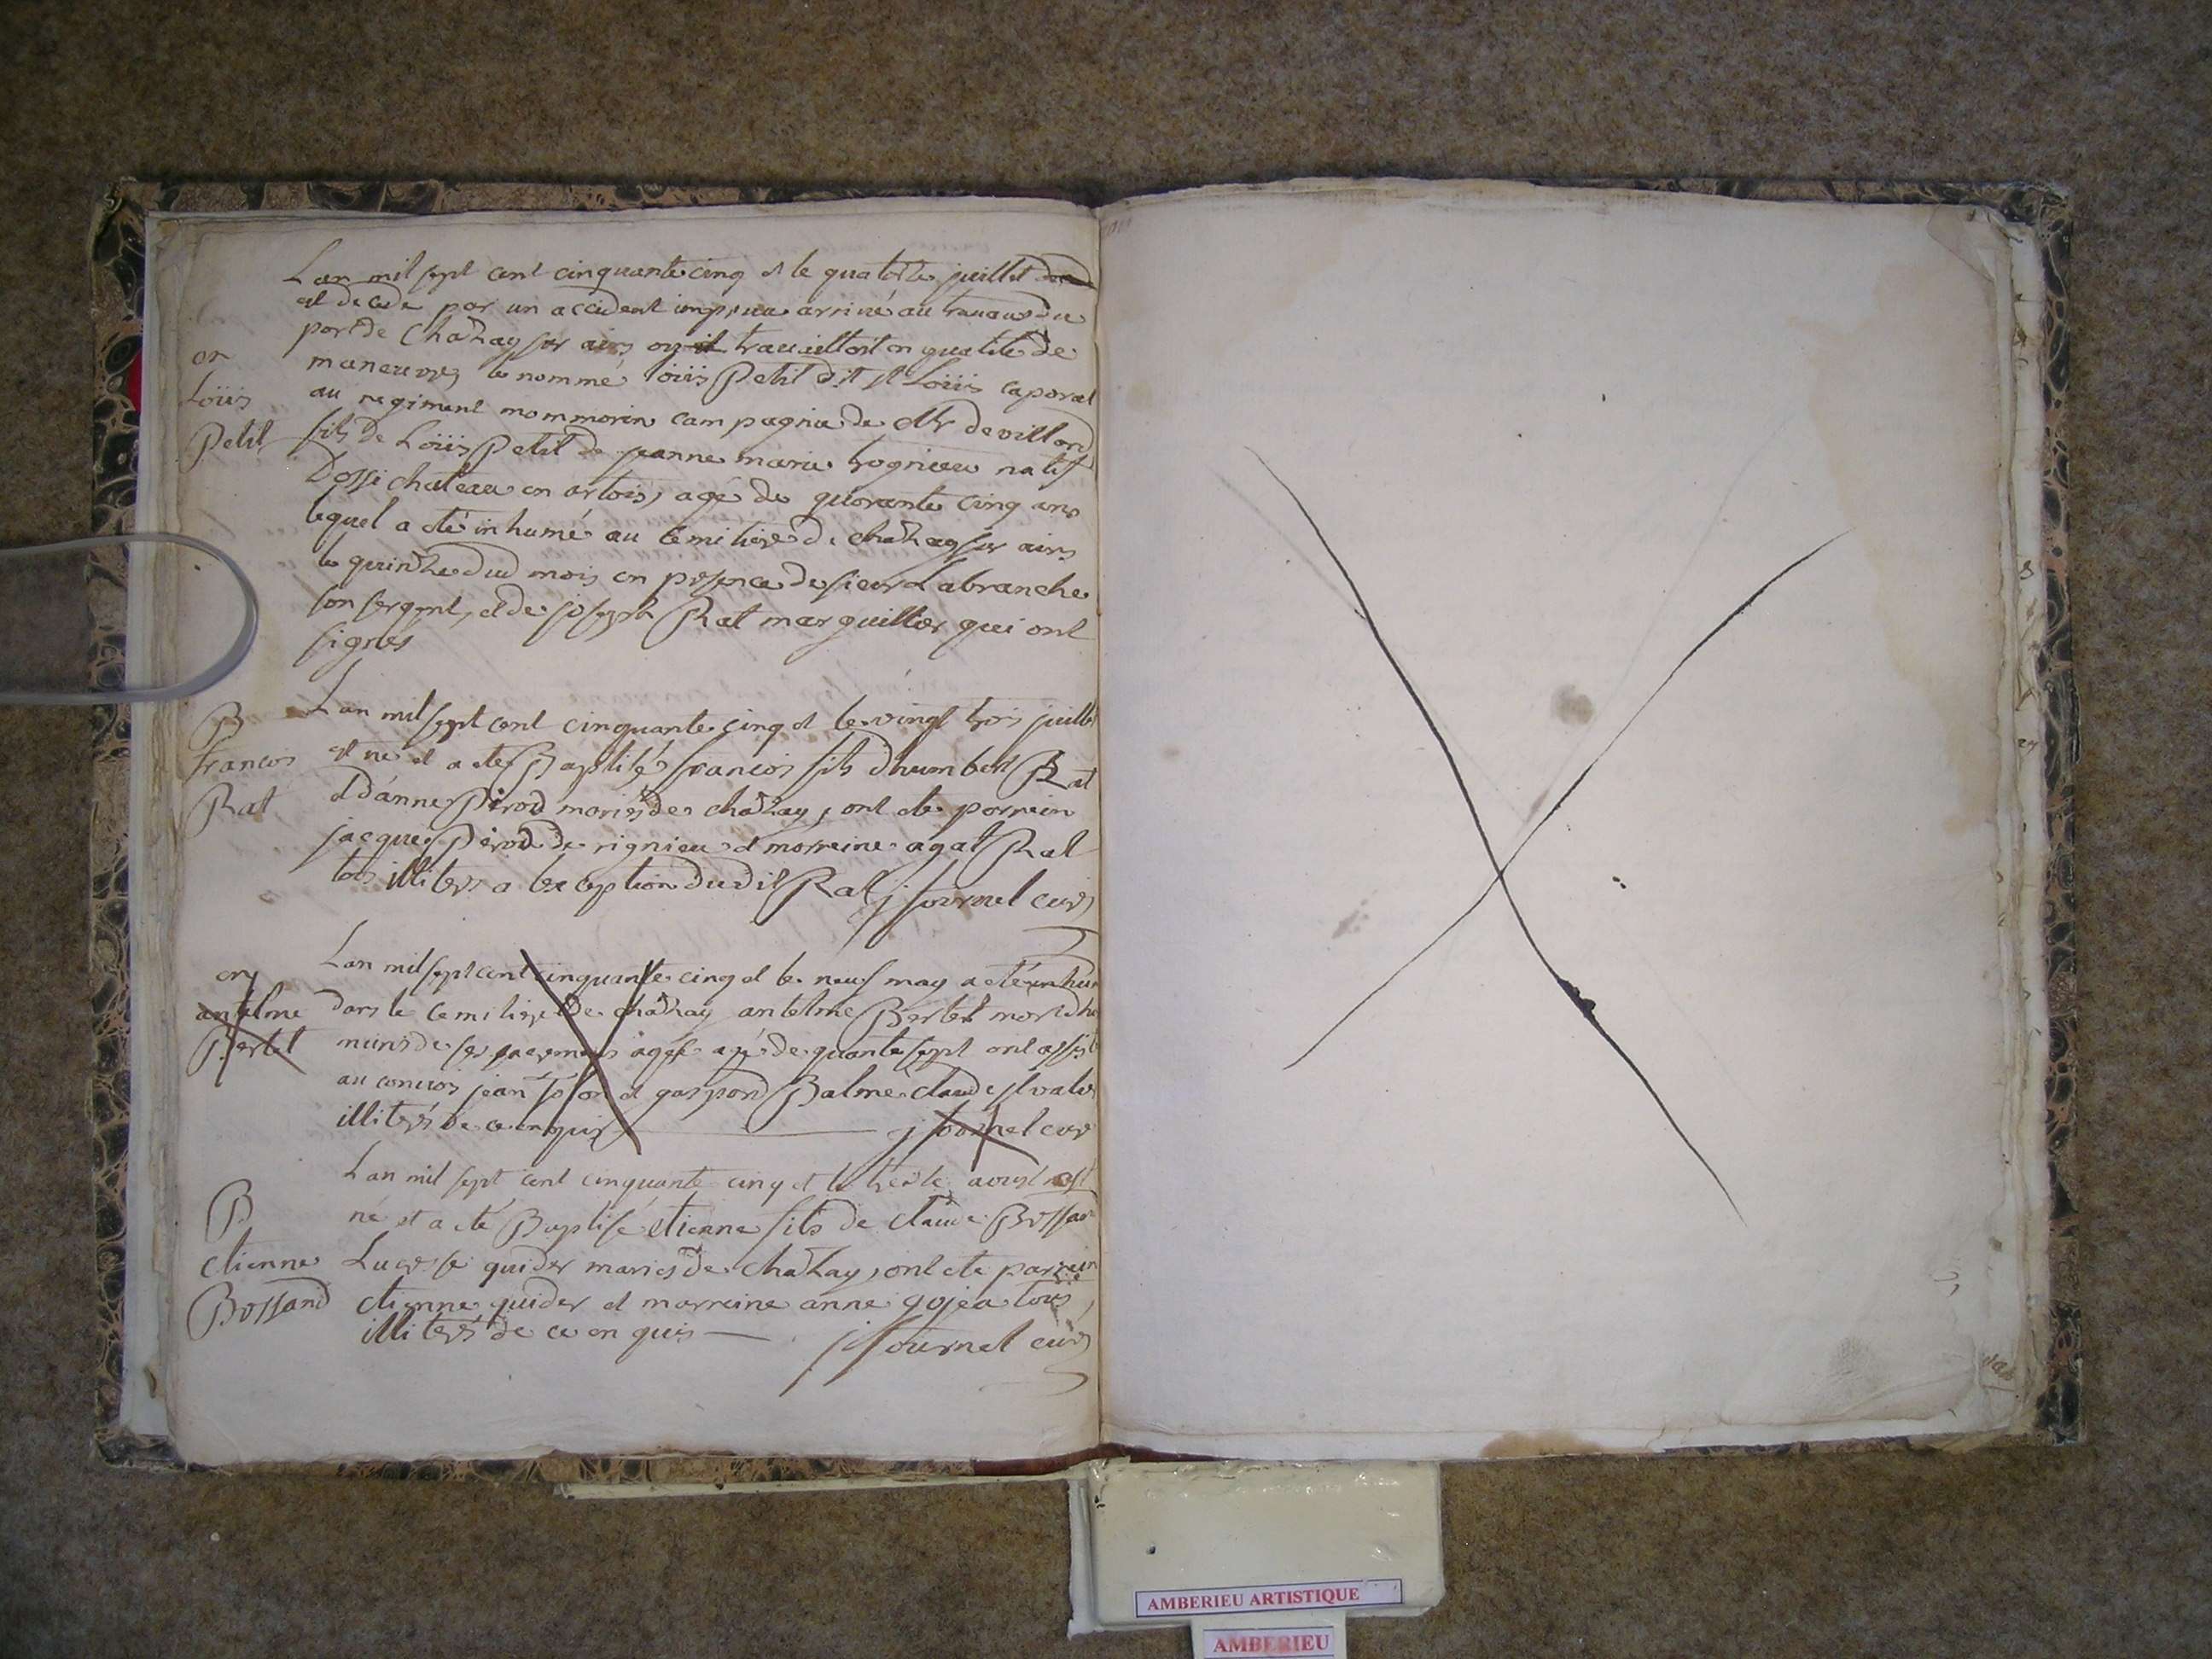 Lan mil sept cent cinquante cinq et le quatorze juillet
est decede par un accident impreu arrivé au travaux du
port de Chazay sur ains ou il travailloit en qualité de
or
maneuvre, le nommé loüis Petit dit st Loüis caporal
Loüis
au regiment mommorin campagnie de Mr devillard
Petit
fils de Loüis Petit de jeanne marie trognieu natif
Dossi chateau en artois, agé de quorante cinq ans
lequel a été inhumé au cemitiere de chazay sur ains
le quinze dud mois en presence de sieur Labranche
son sergent, et de joseph Rat marguillier qui ont
signés
B
francois
Rat
Lan mil sept cent cinquante cinq et le vingt trois juillet
est né et a eté Baptisé francois fils dhumbert Rat
et dánne Pérod mariés de chazay, ont ete parrein
jacques Pérod de rignieu et marreine agat Rat
tous illiterés a lexception dudit Rat j fournel curé
or
antelme
Bertet
Lan mil sept cent cinquante cinq et le neuf may a été inhu
dans le cemitiere de chazay antelme Bertet mort
munis de ses agé de quante sept ont assis
au convois jean et gaspard Balme claude
illiterés de ce enquis j fournel curé
B
etienne
Bossand
Lan mil sept cent cinquante cinq et le treize aoust est
né et a eté Baptisé etienne fils de claude Bossan
Lucresse guider mariés de chazay, ont ete parrein
etienne guider et marreine anne gojea tous
illiterés de ce enquis j fournel curé
AMBERIEU ARTISTIQUE
AMBERIEU